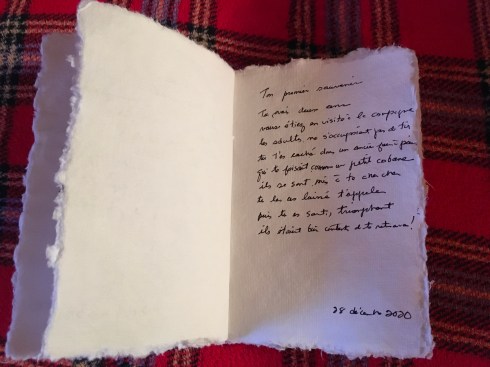 Ton premier souvenir
Tu avais deux ans
vous étiez en visite à la campagne
les adultes ne s'occupaient pas de toi
tu t'es caché dans un ancien
qui te faisait comme un petit cabane
ils se sont mis à te chercher
tu les as laissé t'appeler
puis tu es sorti, triomphant
ils étaient très contents de te retrouver!
28 décembre 2020